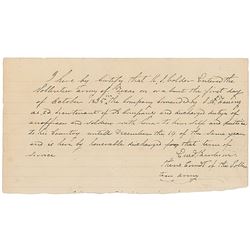 I here by certify that A. S. Golder Entered the
Volluntier army of Texas on or a bout the first day
of October 1835 The Company Commanded by
as Lieutenant of Company and discharged duties of
an officer and soldier with honor to him self and justice
to his Country untill December the 19 of the same year
and is here by honorable discharged from that term of
service
Burleson
Comdt of the Volln
tier army